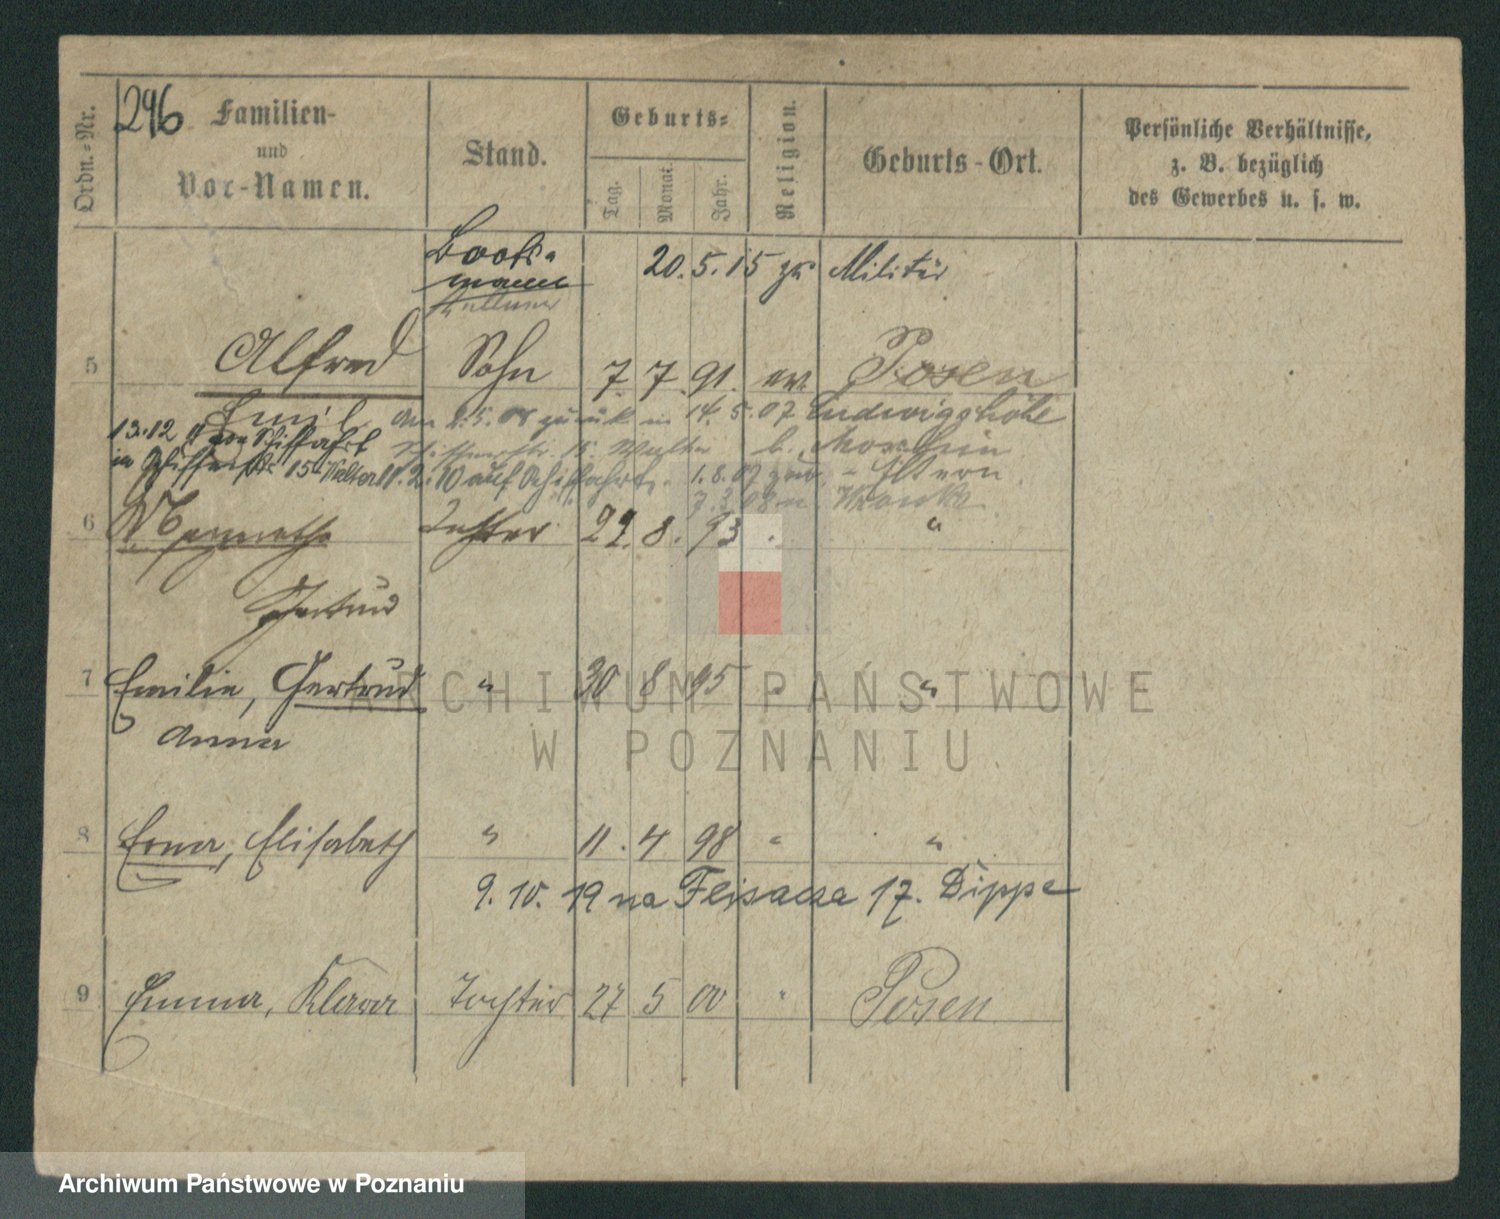 296
Ordn.-Nr.
Familien-
und
Vor-Namen.
Stand.
Geburts-
Tag.
Monat.
Jahr.
Religion.
Geburts-Ort.
Persönliche Verhältnisse,
z. B. bezüglich
des Gewerbes u. s. w.
Boots-
mann 20.5.15 zu Militär
5 Alfred Sohn 7. 7. 91. ev. Posen
Emil am zurück in 14.5.07 Ludwigshöhe
13.12 von Schiffahrt b.
in 15 11.2.10 auf Schiffahrt. 1.8.07 zur. - Eltern
6 Margarethe Tochter 8. 93 "
Gertrud
7 Emilie, Gertrud " 30 8 95 " "
Anna
8 Erna, Elisabeth " 11. 4 98 " "
9. 10. 19 na 17. Dippe
9 Emma, Klara Tochter 27 5 00 " Posen
ARCHIWUM PAŃSTWOWE
W POZNANIU
Archiwum Państwowe w Poznaniu